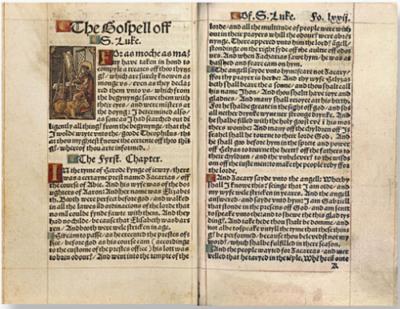 The Gospell off
S. Luke.
For as moche as ma
ny have taken in hond to
compyle a treates off thoo thyn
gs/ which are surely knowen as
monge vs/ even as they declar
ed them vnto vs/ which from
the begynynge sawe them with
their eyes/ and were ministers at
the doyng: I determined also/
as sone as I had searched out di
ligently all things from the begynynge/ that then
I wolde wryte vnto the/ goode Theophilus/ that
thou myghtest knowe the certente off thoo thin
gs/ whereof thou arte informed.
The Fyrst. Chapter.
In the tyme of Herode kynge of iewry/ there
was a certayne prest named Zacarias/ off
the course of Abie. And his wyfe was of the do
ughters of Aaron: And her name was Elizabeth
Booth were perfect before god/ and walked
in all the lawes and ordinacions of the lorde that
no man coulde fynde fawte with them. And they
had no childe/ because that Elisabeth was bar
ren/ And booth were wele stricken in age.
Hit cam to passe/ as he executed the prestes of
fice/ before god as his course cam (accordinge
to the custome of the prestes office) his lott was
to bren odoures/ And went into the temple of the
Off. S. Luke. Fo. lxxij.
lorde and all the multitude of people were with
out in their prayers whill the odoures were abren
nynge. There appered vnto him the lordes angell
stondinge on the right syde off the aultre of odou
res. And when Zacarias sawe hym/ he was a
basshed and feare cam on hym.
The angell sayde vnto hym: feare not Zacary/
for thy prayer is herde: And thy wyfe Elizabeth
shall beare the a sonne/ and thou shalt call his
name Jhon/ And thou shalt have ioye and
gladnes/ And many shall reioyce att his birth.
For he shalbe greate in the sight off god/ and shall
nether drynke wyne ner stronge drynke. And he
shalbe filled with the holy goost/ even in his mo
thers wombe: And many off the chyldren off Is
raehel shall he tourne to their lorde God. And
he shall goo before hym in the sprete and power
off Helyas to tourne the hertes off the fathers to
their chyldren/ and the vnbelevers to the wisdo
m off the iuste men: to make the people redy for
the lorde.
And Zacary sayde vnto the angell: Wherby
shall I knowe this? seinge that I am olde/ and
my wyfe wele stricken in yeares. And the angell
answered/ and sayde vnto hym: I am Gabriell
that stonde in the presens off God/ and am sent
to speake vnto the: and to shewe the this glad ty
dinge/ And take hede thou shalt be domme/ and
not able to speake vntyll the tyme that these thin
gs be performed/ because thou belevest not my
wordes/ which shalbe fulfilled in there season.
And the people wayted for Zacarias/ and mer
velled that he taryed in the temple/ When he cam oute
A